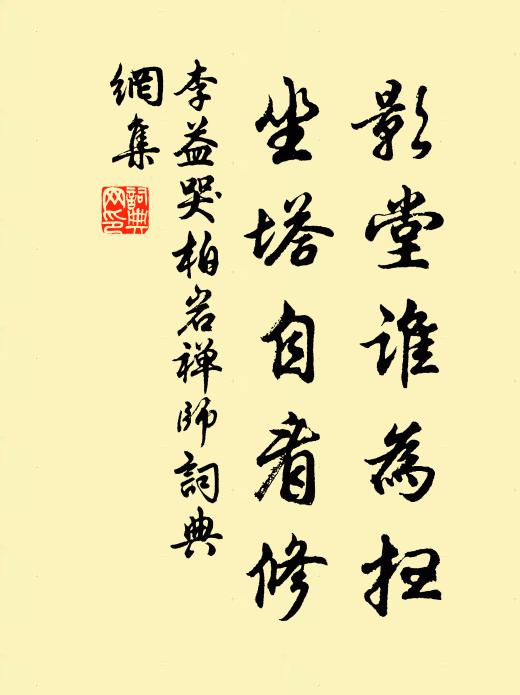 影堂谁為扫
坐塔自看修
李益哭柏岩禅师詞典
網集
詞典網印